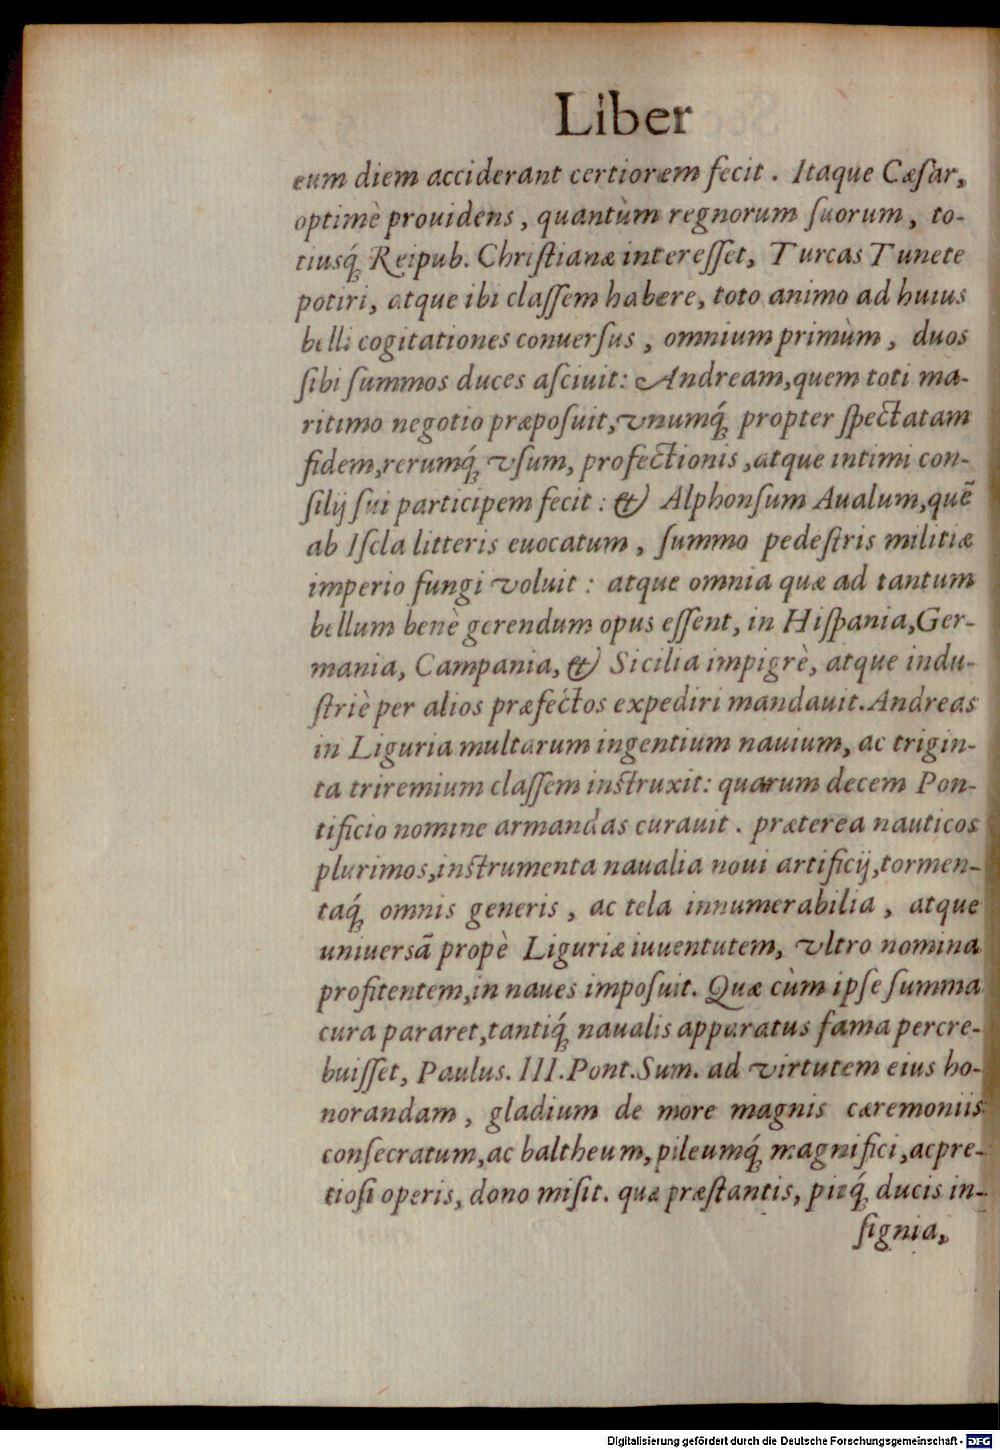 Liber
eum diem acciderant certiorem fecit. Itaque Cæſar,
optimè prouidens, quantùm regnorum ſuorum, to-
tiusq́ꝫ Reipub. Chriſtianæ intereſſet, Turcas Tunete
potiri, atque ibi claſſem habere, toto animo ad huius
belli cogitationes conuerſus, omnium primùm, duos
ſibi ſummos duces aſciuit: Andream, quem toti ma-
ritimo negotio præpoſuit, vnumq́ꝫ propter ſpectatam
fidem, rerumq́ꝫ vſum, profectionis, atque intimi con-
ſilij ſui participem fecit: & Alphonſum Aualum, quē
ab Iſcla litteris euocatum, ſummo pedeſtris militiæ
imperio fungi voluit: atque omnia quæ ad tantum
bellum benè gerendum opus eſſent, in Hiſpania, Ger-
mania, Campania, & Sicilia impigrè, atque indu-
ſtriè per alios præfectos expediri mandauit. Andreas
in Liguria multarum ingentium nauium, ac trigin-
ta triremium claſſem inſtruxit: quarum decem Pon-
tificio nomine armandas curauit. præterea nauticos
plurimos, inſtrumenta naualia noui artificij, tormen-
taq́ꝫ omnis generis, ac tela innumerabilia, atque
uniuersā propè Liguriæ iuuentutem, vltro nomina
profitentem, in naues impoſuit. Quæ cùm ipſe ſumma
cura pararet, tantiq́ꝫ naualis apparatus fama percre-
buiſſet, Paulus. III. Pont. Sum. ad virtutem eius ho-
norandam, gladium de more magnis cæremoniis
conſecratum, ac baltheum, pileumq́ꝫ magnifici, ac pre-
tioſi operis, dono miſit. quæ præſtantis, piiq́ꝫ ducis in-
ſignia,
Digitalisierung gefördert durch die Deutsche Forschungsgemeinschaft - DFG